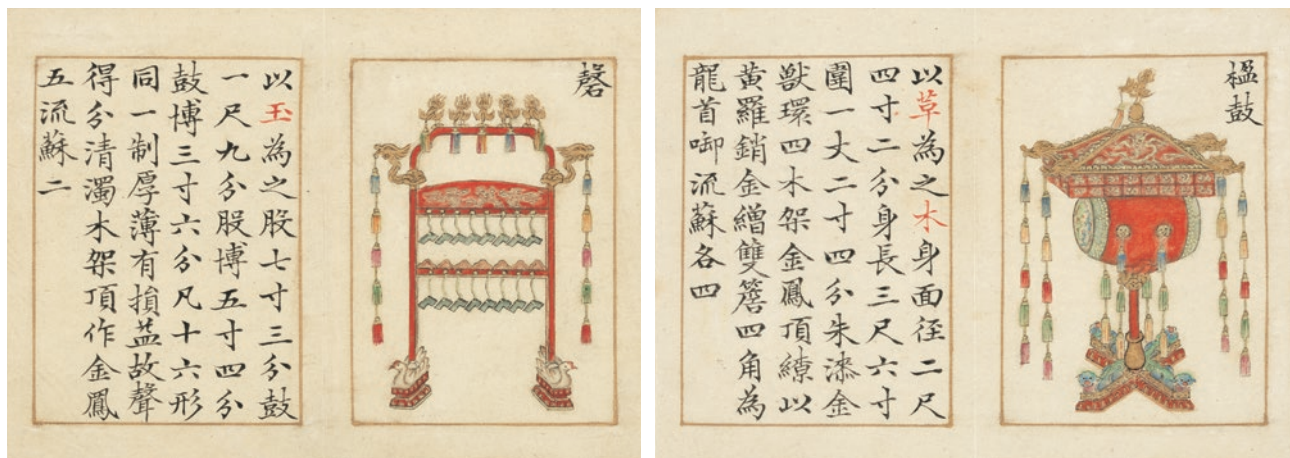 磬
以玉為之股七寸三分鼓
一尺九分股博五寸四分
鼓博三寸六分凡十六形
同一制厚薄有損益故聲
得分清濁木架頂作金鳳
五流蘇二
楹鼓
以草為之木身面徑二尺
四寸二分身長三尺六寸
圍一丈二寸四分朱漆金
獸環四木架金鳳頂繚以
黃羅銷金繒雙簷四角為
龍首啣流蘇各四